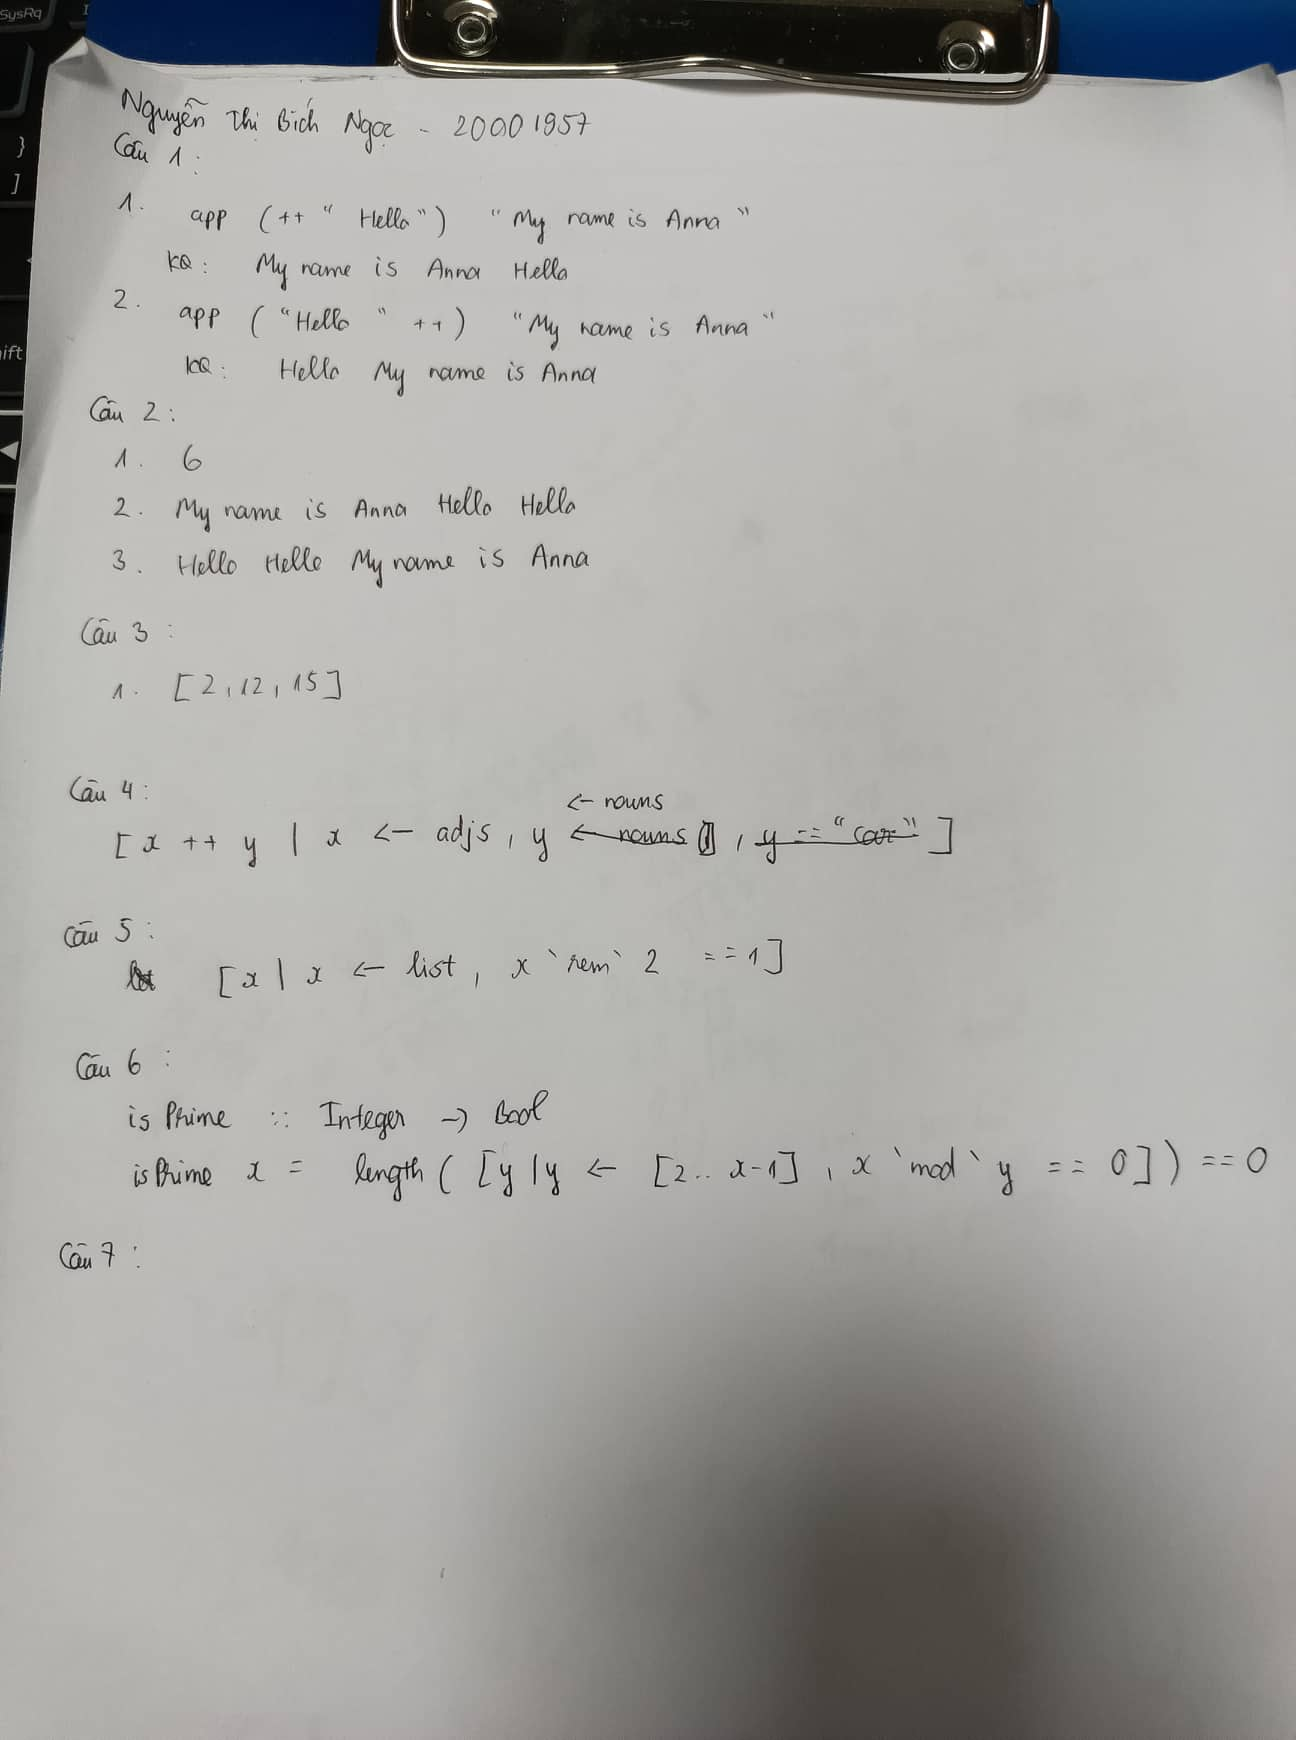 SysRq
}
]
ift
Nguyễn Thị Bích Ngọc - 20001957
Câu 1:
1. app (++ " Hello") "My name is Anna"
KQ: My name is Anna Hello
2. app ("Hello " ++) "My name is Anna"
KQ: Hello My name is Anna
Câu 2:
1. 6
2. My name is Anna Hello Hello
3. Hello Hello My name is Anna
Câu 3:
1. [2,12,15]
Câu 4:
<- nouns
[x ++ y | x <- adjs, y <- nouns , y == "car"]
Câu 5:
[x | x <- list, x `rem` 2 == 1]
Câu 6:
isPrime :: Integer -> Bool
isPrime x = length ( [y | y <- [2.. x-1], x `mod` y == 0]) == 0
Câu 7: